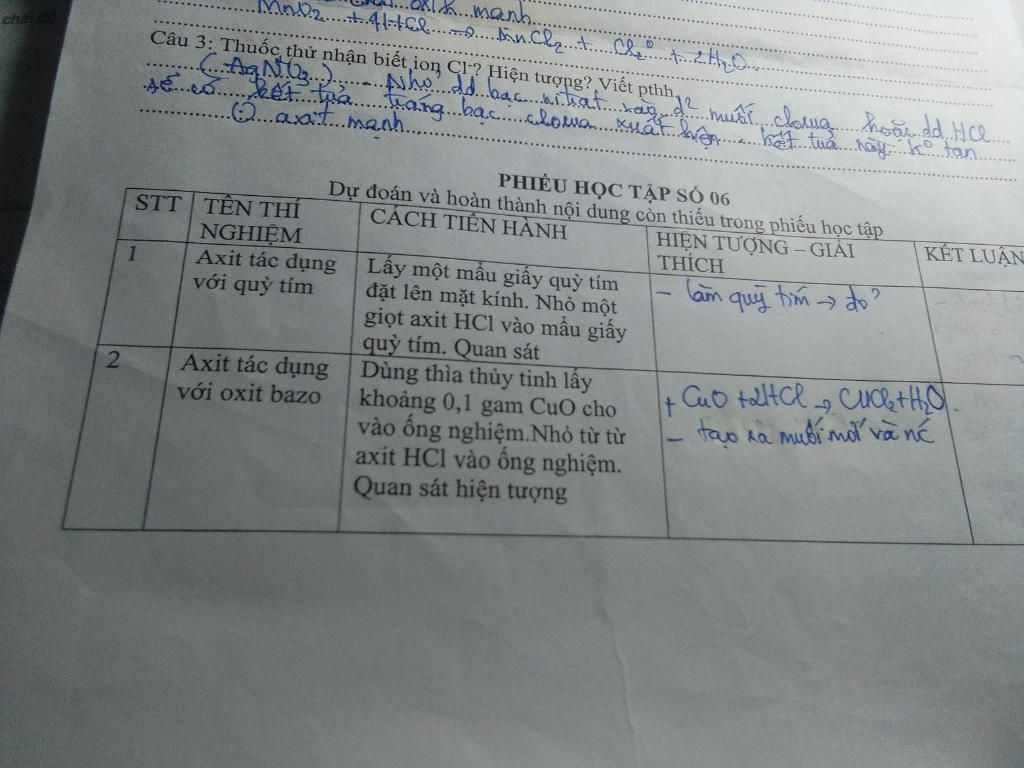 chất độ
oxi k mạnh
MnO₂ + 4HCl → MnCl₂ + Cl₂⁰ + 2H₂O
Câu 3: Thuốc thử nhận biết ion Cl-? Hiện tượng? Viết pthh
(AgNO₃) - Nhỏ dd bạc nitrat vào d² muối clorua hoặc dd HCl
sẽ có kết tủa trắng bạc clorua xuất hiện. kết tủa này k⁰ tan
axit mạnh
PHIẾU HỌC TẬP SỐ 06
Dự đoán và hoàn thành nội dung còn thiếu trong phiếu học tập
STT TÊN THÍ NGHIỆM CÁCH TIẾN HÀNH HIỆN TƯỢNG – GIẢI THÍCH KẾT LUẬN
1 Axit tác dụng với quỳ tím
Lấy một mẩu giấy quỳ tím
đặt lên mặt kính. Nhỏ một
giọt axit HCl vào mẩu giấy
quỳ tím. Quan sát
- làm quỳ tím → đỏ
2 Axit tác dụng với oxit bazo
Dùng thìa thủy tinh lấy
khoảng 0,1 gam CuO cho
vào ống nghiệm.Nhỏ từ từ
axit HCl vào ống nghiệm.
Quan sát hiện tượng
+ CuO + 2HCl → CuCl₂ + H₂O.
- tạo ra muối mới và nc